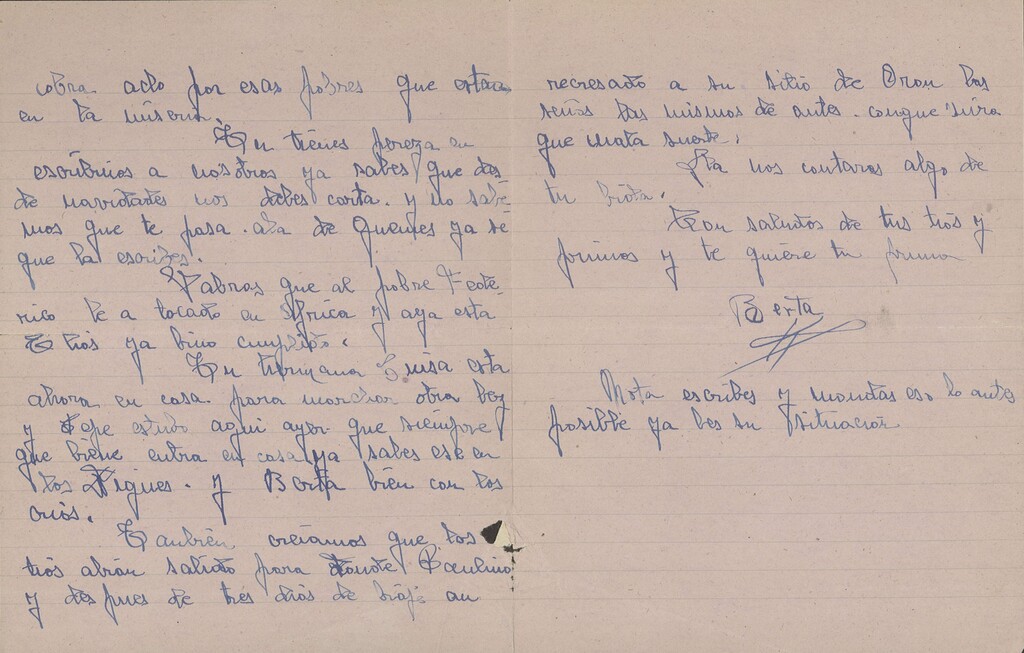 cobra. acto por esas pobres que estan
en la miseria.
Tu tienes pereza en
escribirnos a nosotros ya sabes que des
de navidades nos debes carta. y no sabe
mos que te pasa. ala de Quemes ya se
que la escribes.
Sabras que al pobre Fede
rico le a tocado en Africa y aya esta
tios ya bino cumplido.
Tu hermana Luisa esta
ahora en casa. para marchar otra bez
y Pepe estubo aqui ayer que siempre
que biene entra en casa ya sabes esta en
los Digues. y Berta bien con los
crios.
Tambien creiamos que los
tios abian salido para donde Paulino
y des pues de tres dias de biaje an
recresado a su sitio de Oran las
señas las mismas de antes. conque mira
que mala suerte.
Ya nos contaras algo de
tu bida.
Con saludos de tus tios y
primos y te quiere tu prima
Berta
Nota escribes y mandas eso lo antes
posible ya bes su situacion